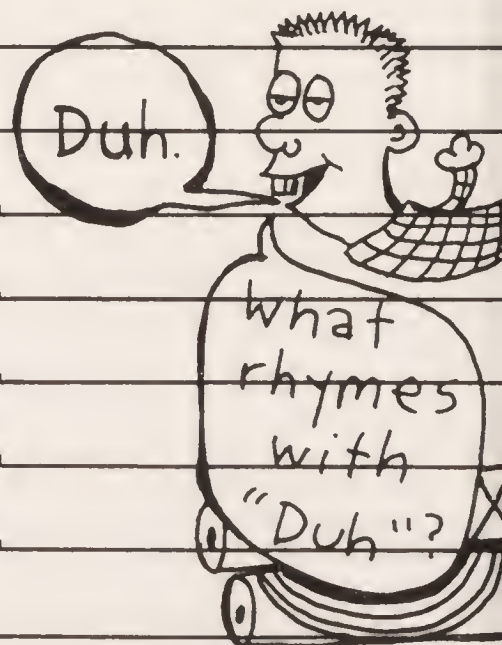 Duh.
What
rhymes
with
"Duh"?